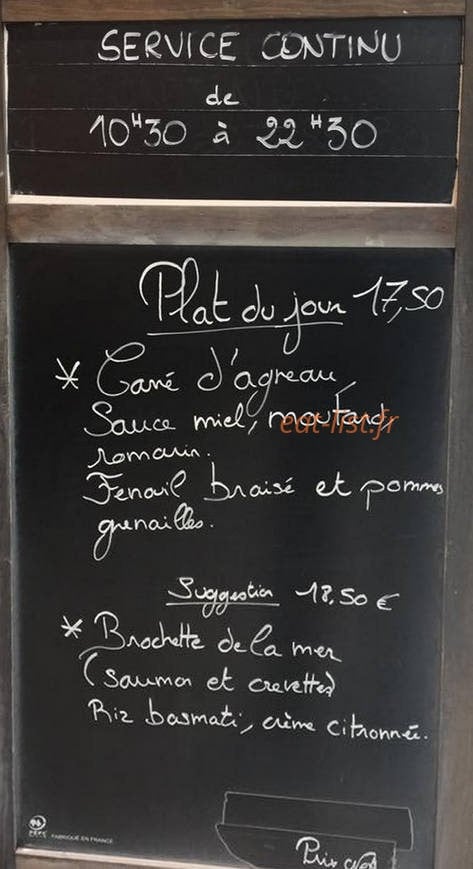 SERVICE CONTINU
de
10H30 à 22H30
Plat du jour 17,50
* Carré d'agneau,
Sauce miel, moutarde,
romarin.
Fenouil braisé et pommes
grenailles.
Suggestion 18,50 €
* Brochette de la mer
(saumon et crevettes)
Riz basmati, crème citronnée.
PEFC FABRIQUÉ EN FRANCE
Prix
eat-list.fr